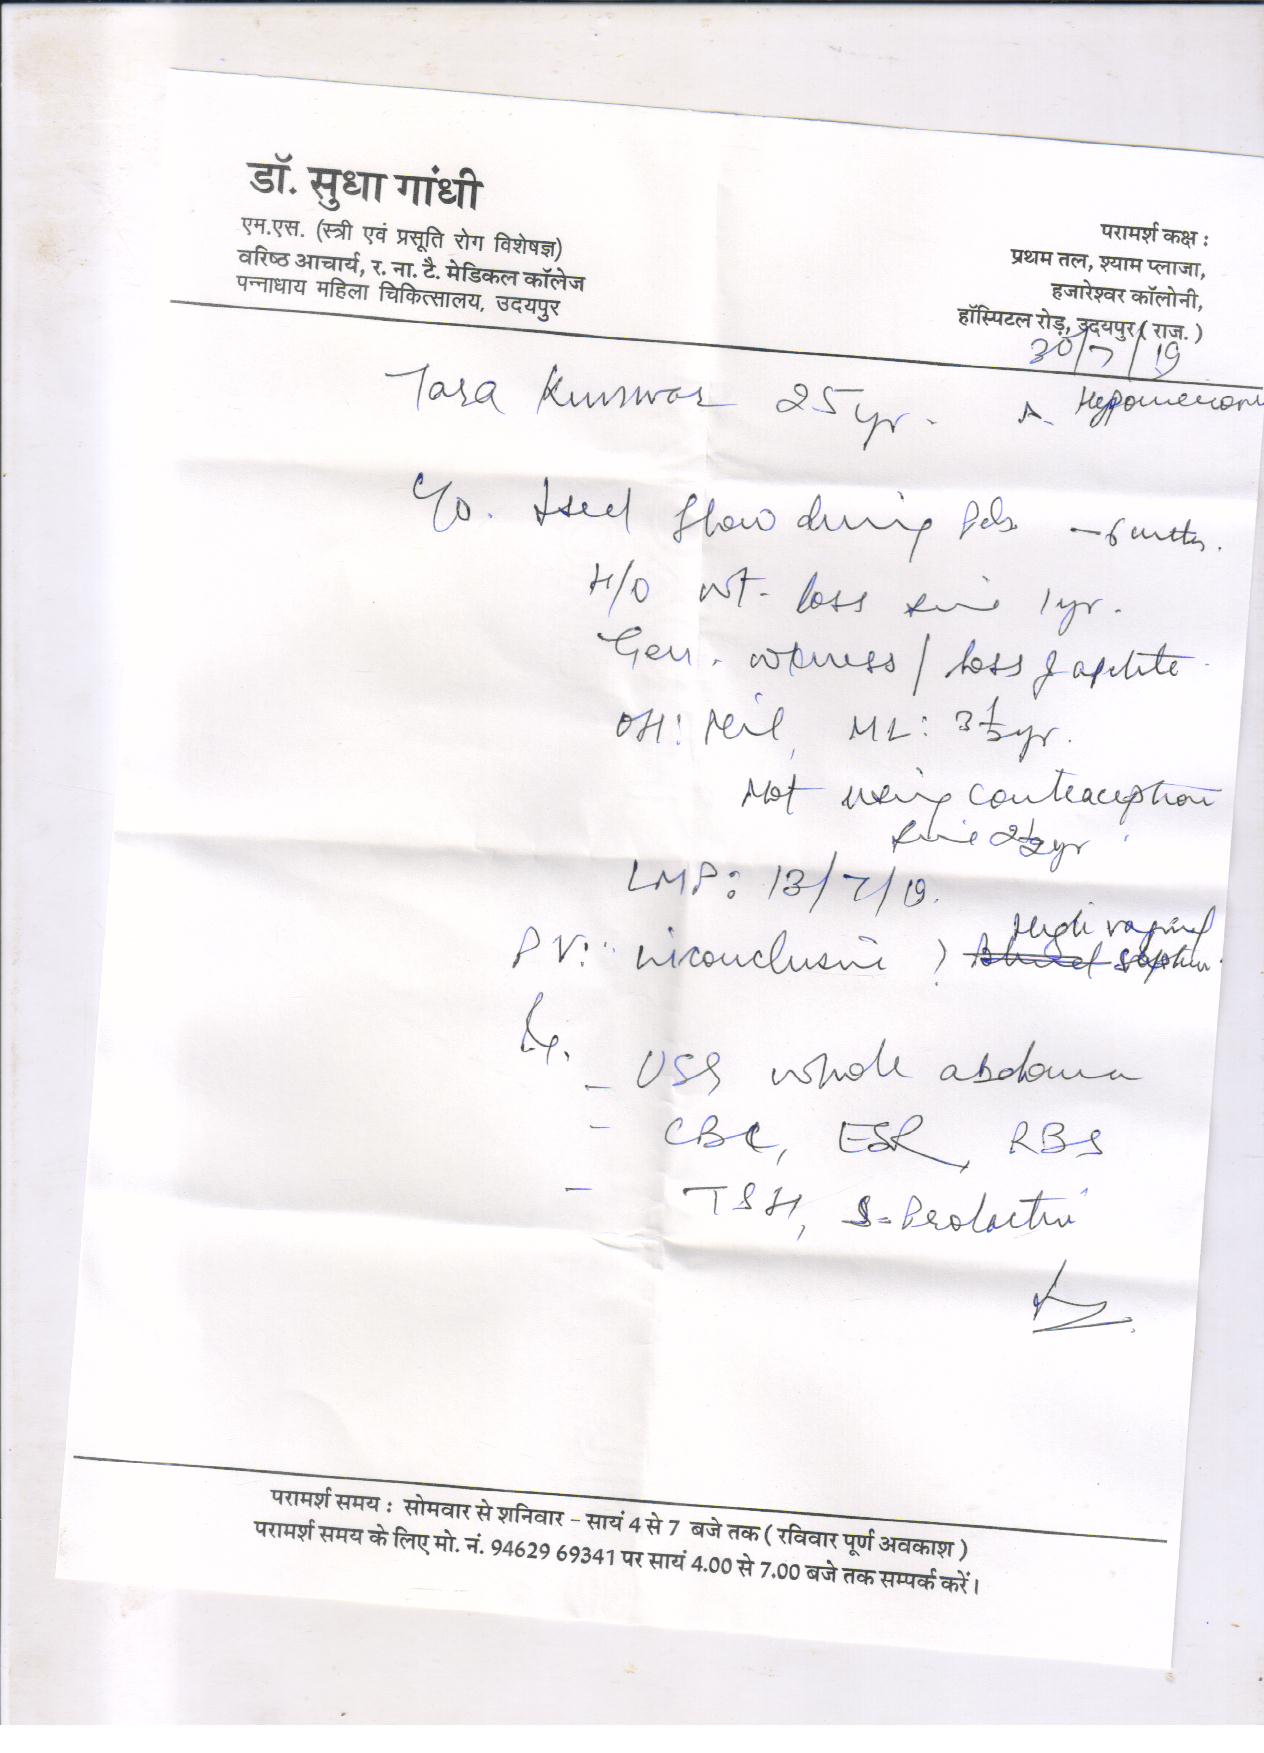 डॉ. सुधा गांधी
एम.एस. (स्त्री एवं प्रसूति रोग विशेषज्ञ)
वरिष्ठ आचार्य, र. ना. टै. मेडिकल कॉलेज
पन्नाधाय महिला चिकित्सालय, उदयपुर
परामर्श कक्ष :
प्रथम तल, श्याम प्लाजा,
हजारेश्वर कॉलोनी,
हॉस्पिटल रोड़, उदयपुर ( राज. )
30/7/19
Tara Kunwar 25 yr.
C/O. flow during Pds - 6 mths.
H/O wt. loss since 1 yr.
Gen. wkness / loss of aptite
OH: Nil, ML: 3½ yr.
Not using contraception
since 2½ yr
LMP: 13/7/19.
High vaginal
PV: inconclusive ?
- USG whole abdomen
- CBC, ESR, RBS
- TSH, S-Prolactin
परामर्श समय : सोमवार से शनिवार - सायं 4 से 7 बजे तक ( रविवार पूर्ण अवकाश )
परामर्श समय के लिए मो. नं. 94629 69341 पर सायं 4.00 से 7.00 बजे तक सम्पर्क करें।